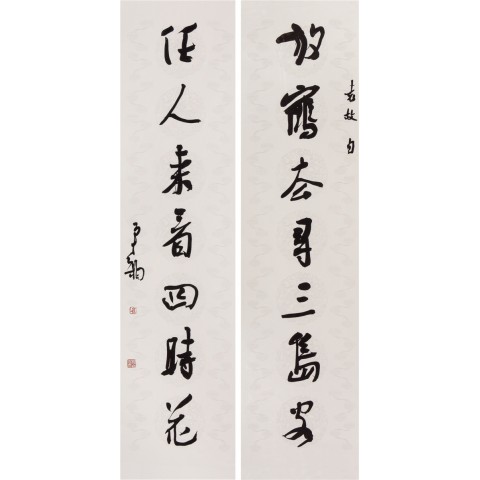 放鶴去尋三島客
袁枚句
任人來看四時花